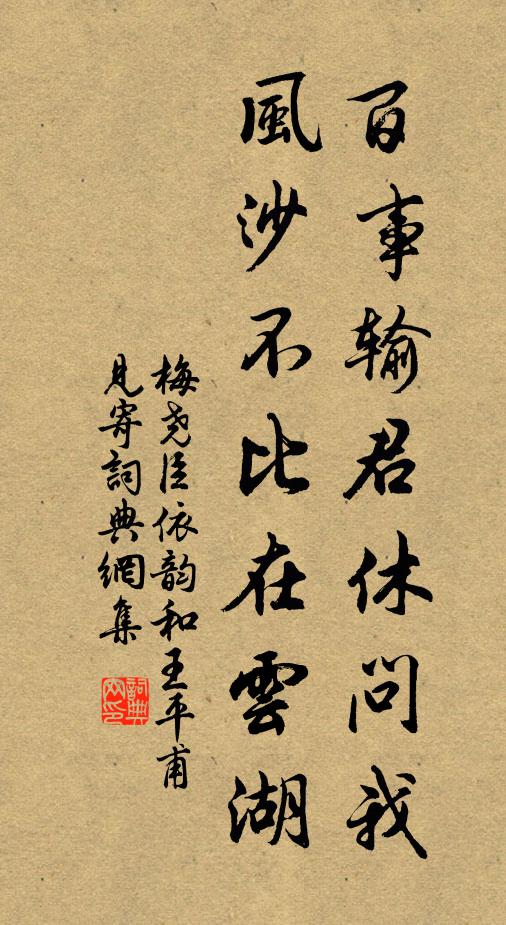 百事输君休问我
風沙不比在雲湖
梅尧臣依韵和王平甫
見寄詞典網集
詞典
网印